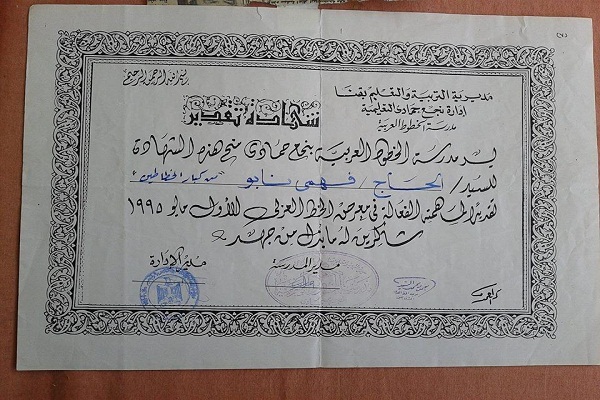 (٧)
بسم الله الرحمن الرحيم
مديرية التربية والتعليم بقنا
إدارة نجع حمادى التعليمية
مدرسة الخطوط العربية
شهادة تقدير
يسر مدرسة الخطوط العربية بنجع حمادى منح هذه الشهادة
للسيد/ الحاج/ فهمى نابو "من كبار الخطاطين"
تقديرا لمساهمته الفعالة فى معرض الخط العربى الأول مايو ١٩٩٥
شاكرين له ما بذل من جهد
مدير المدرسة
مدير الإدارة